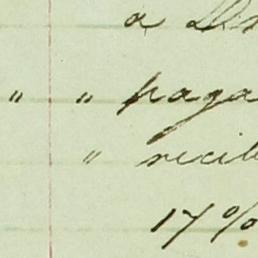 a
" " paga
" recib
17%